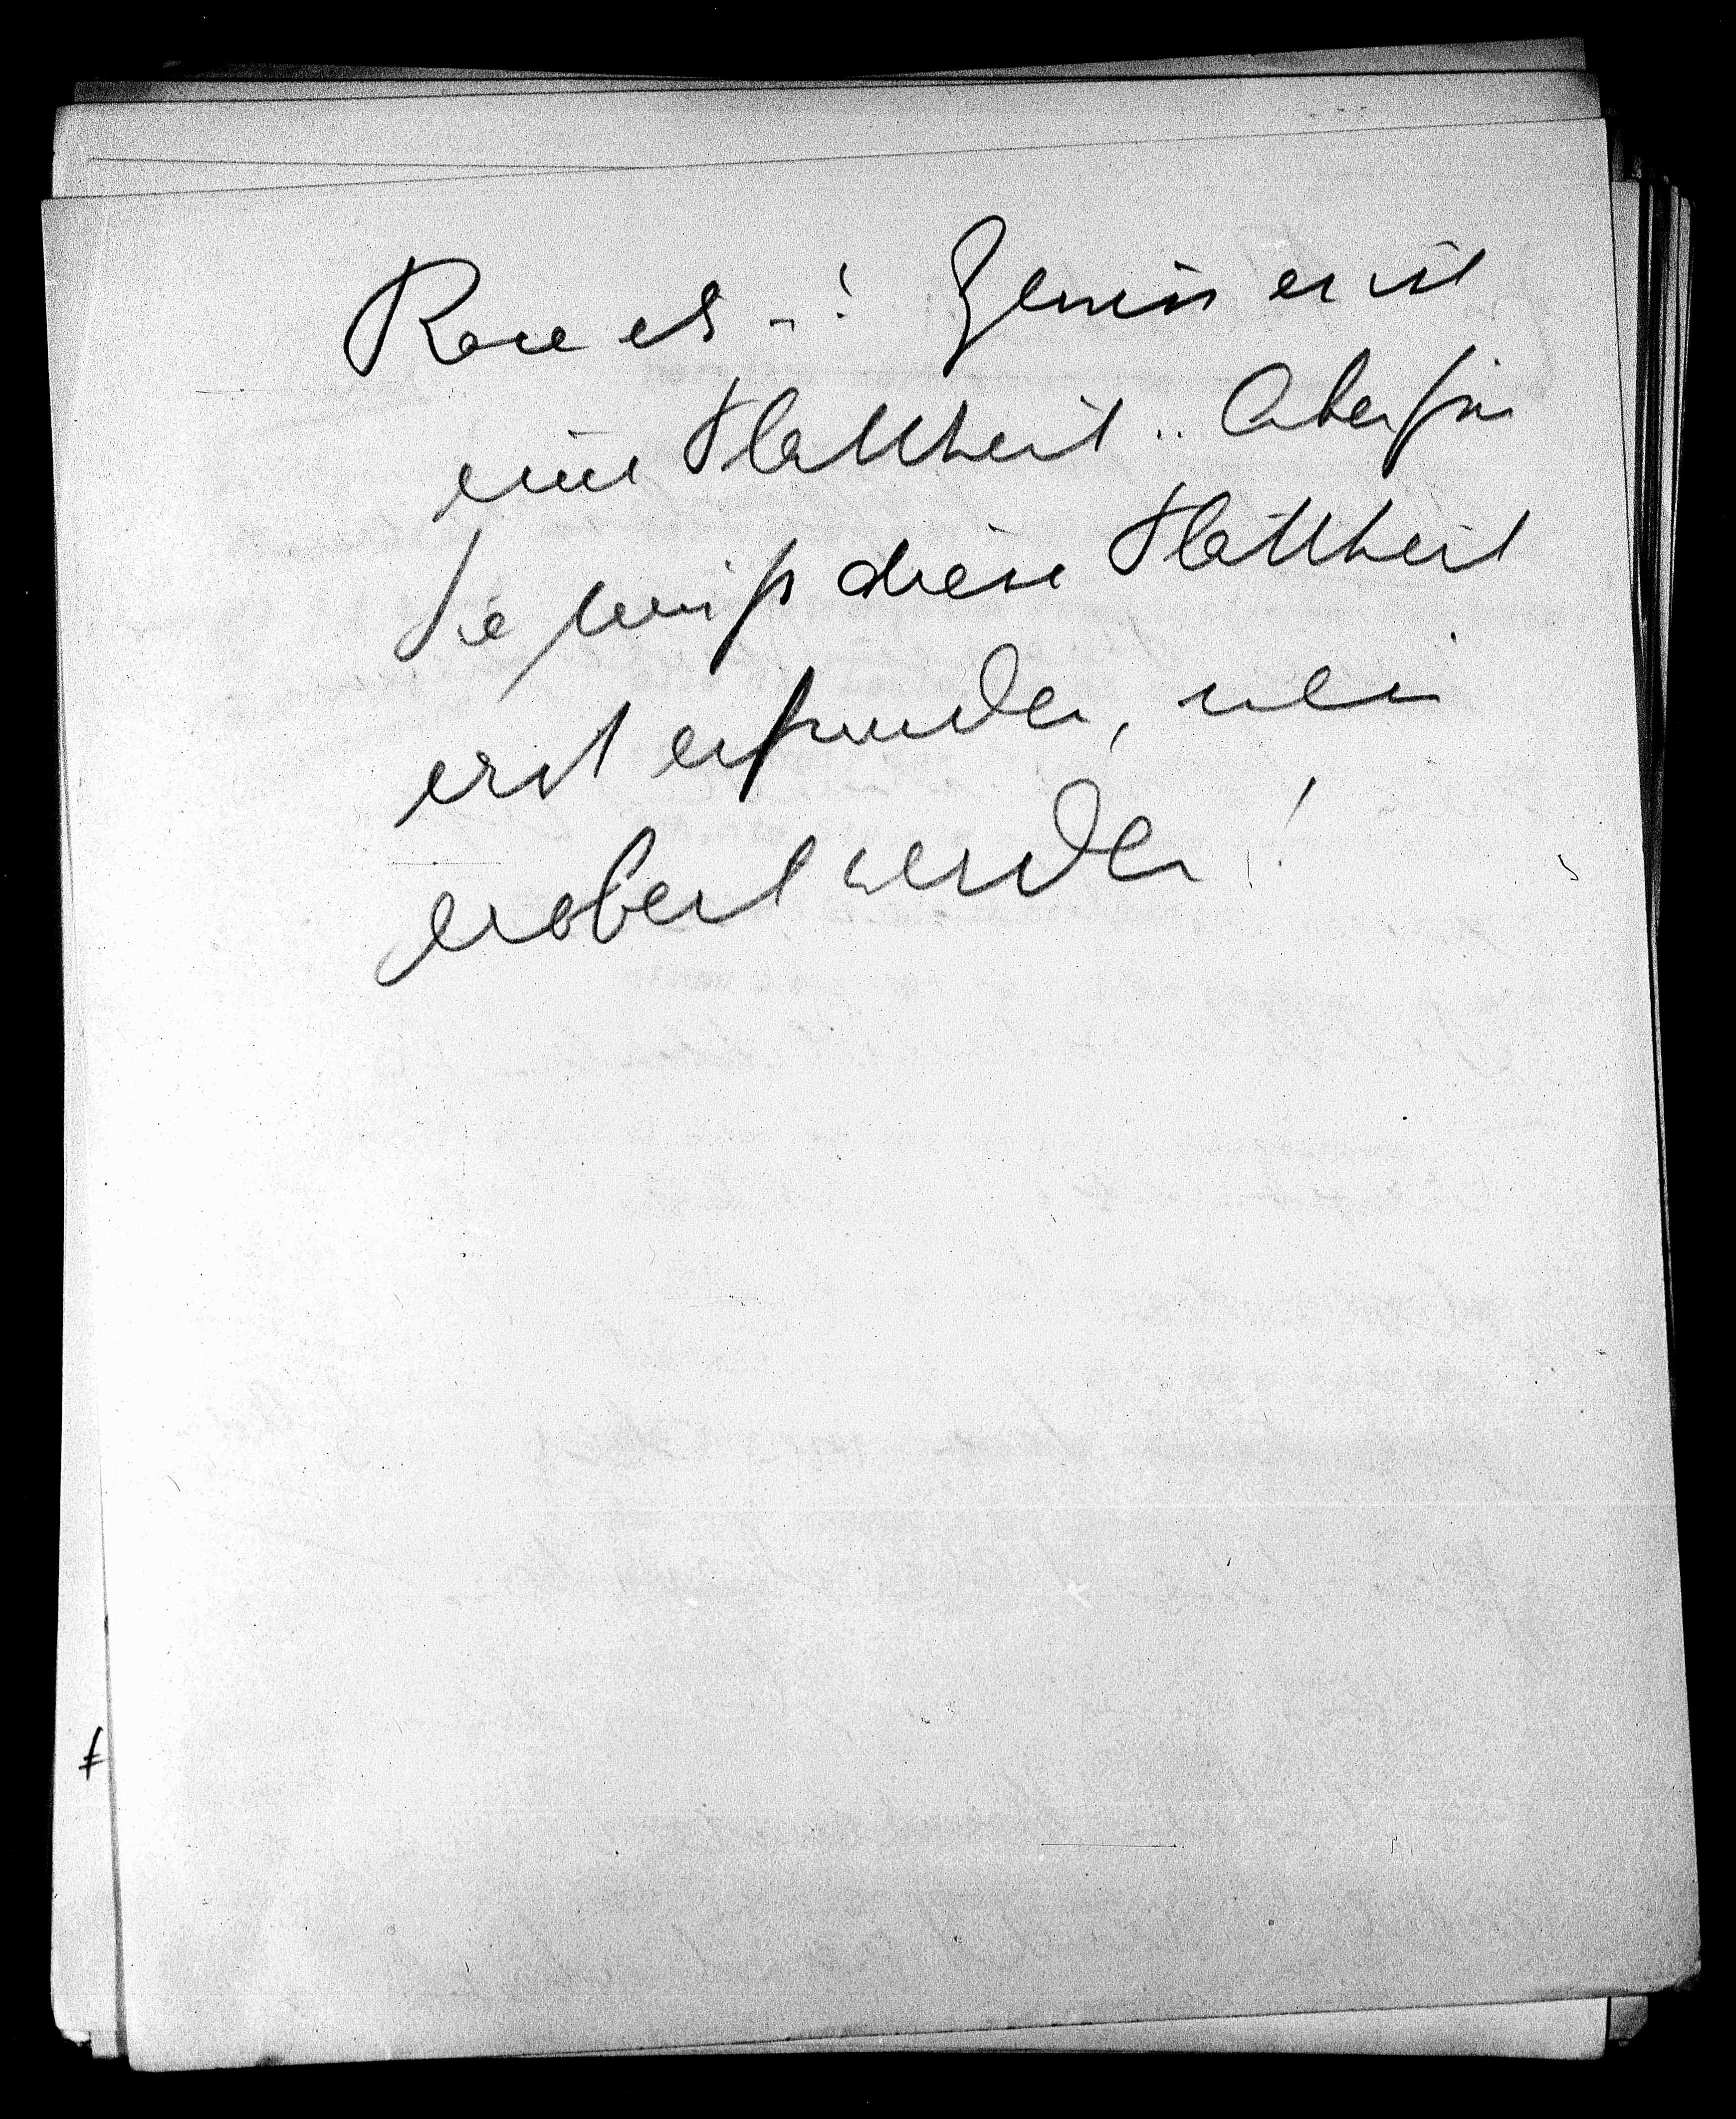 Gewiss es ist
eine Plattheit .. Aber für
Sie muß diese Plattheit
erst erfunden, neu
erobert werden!